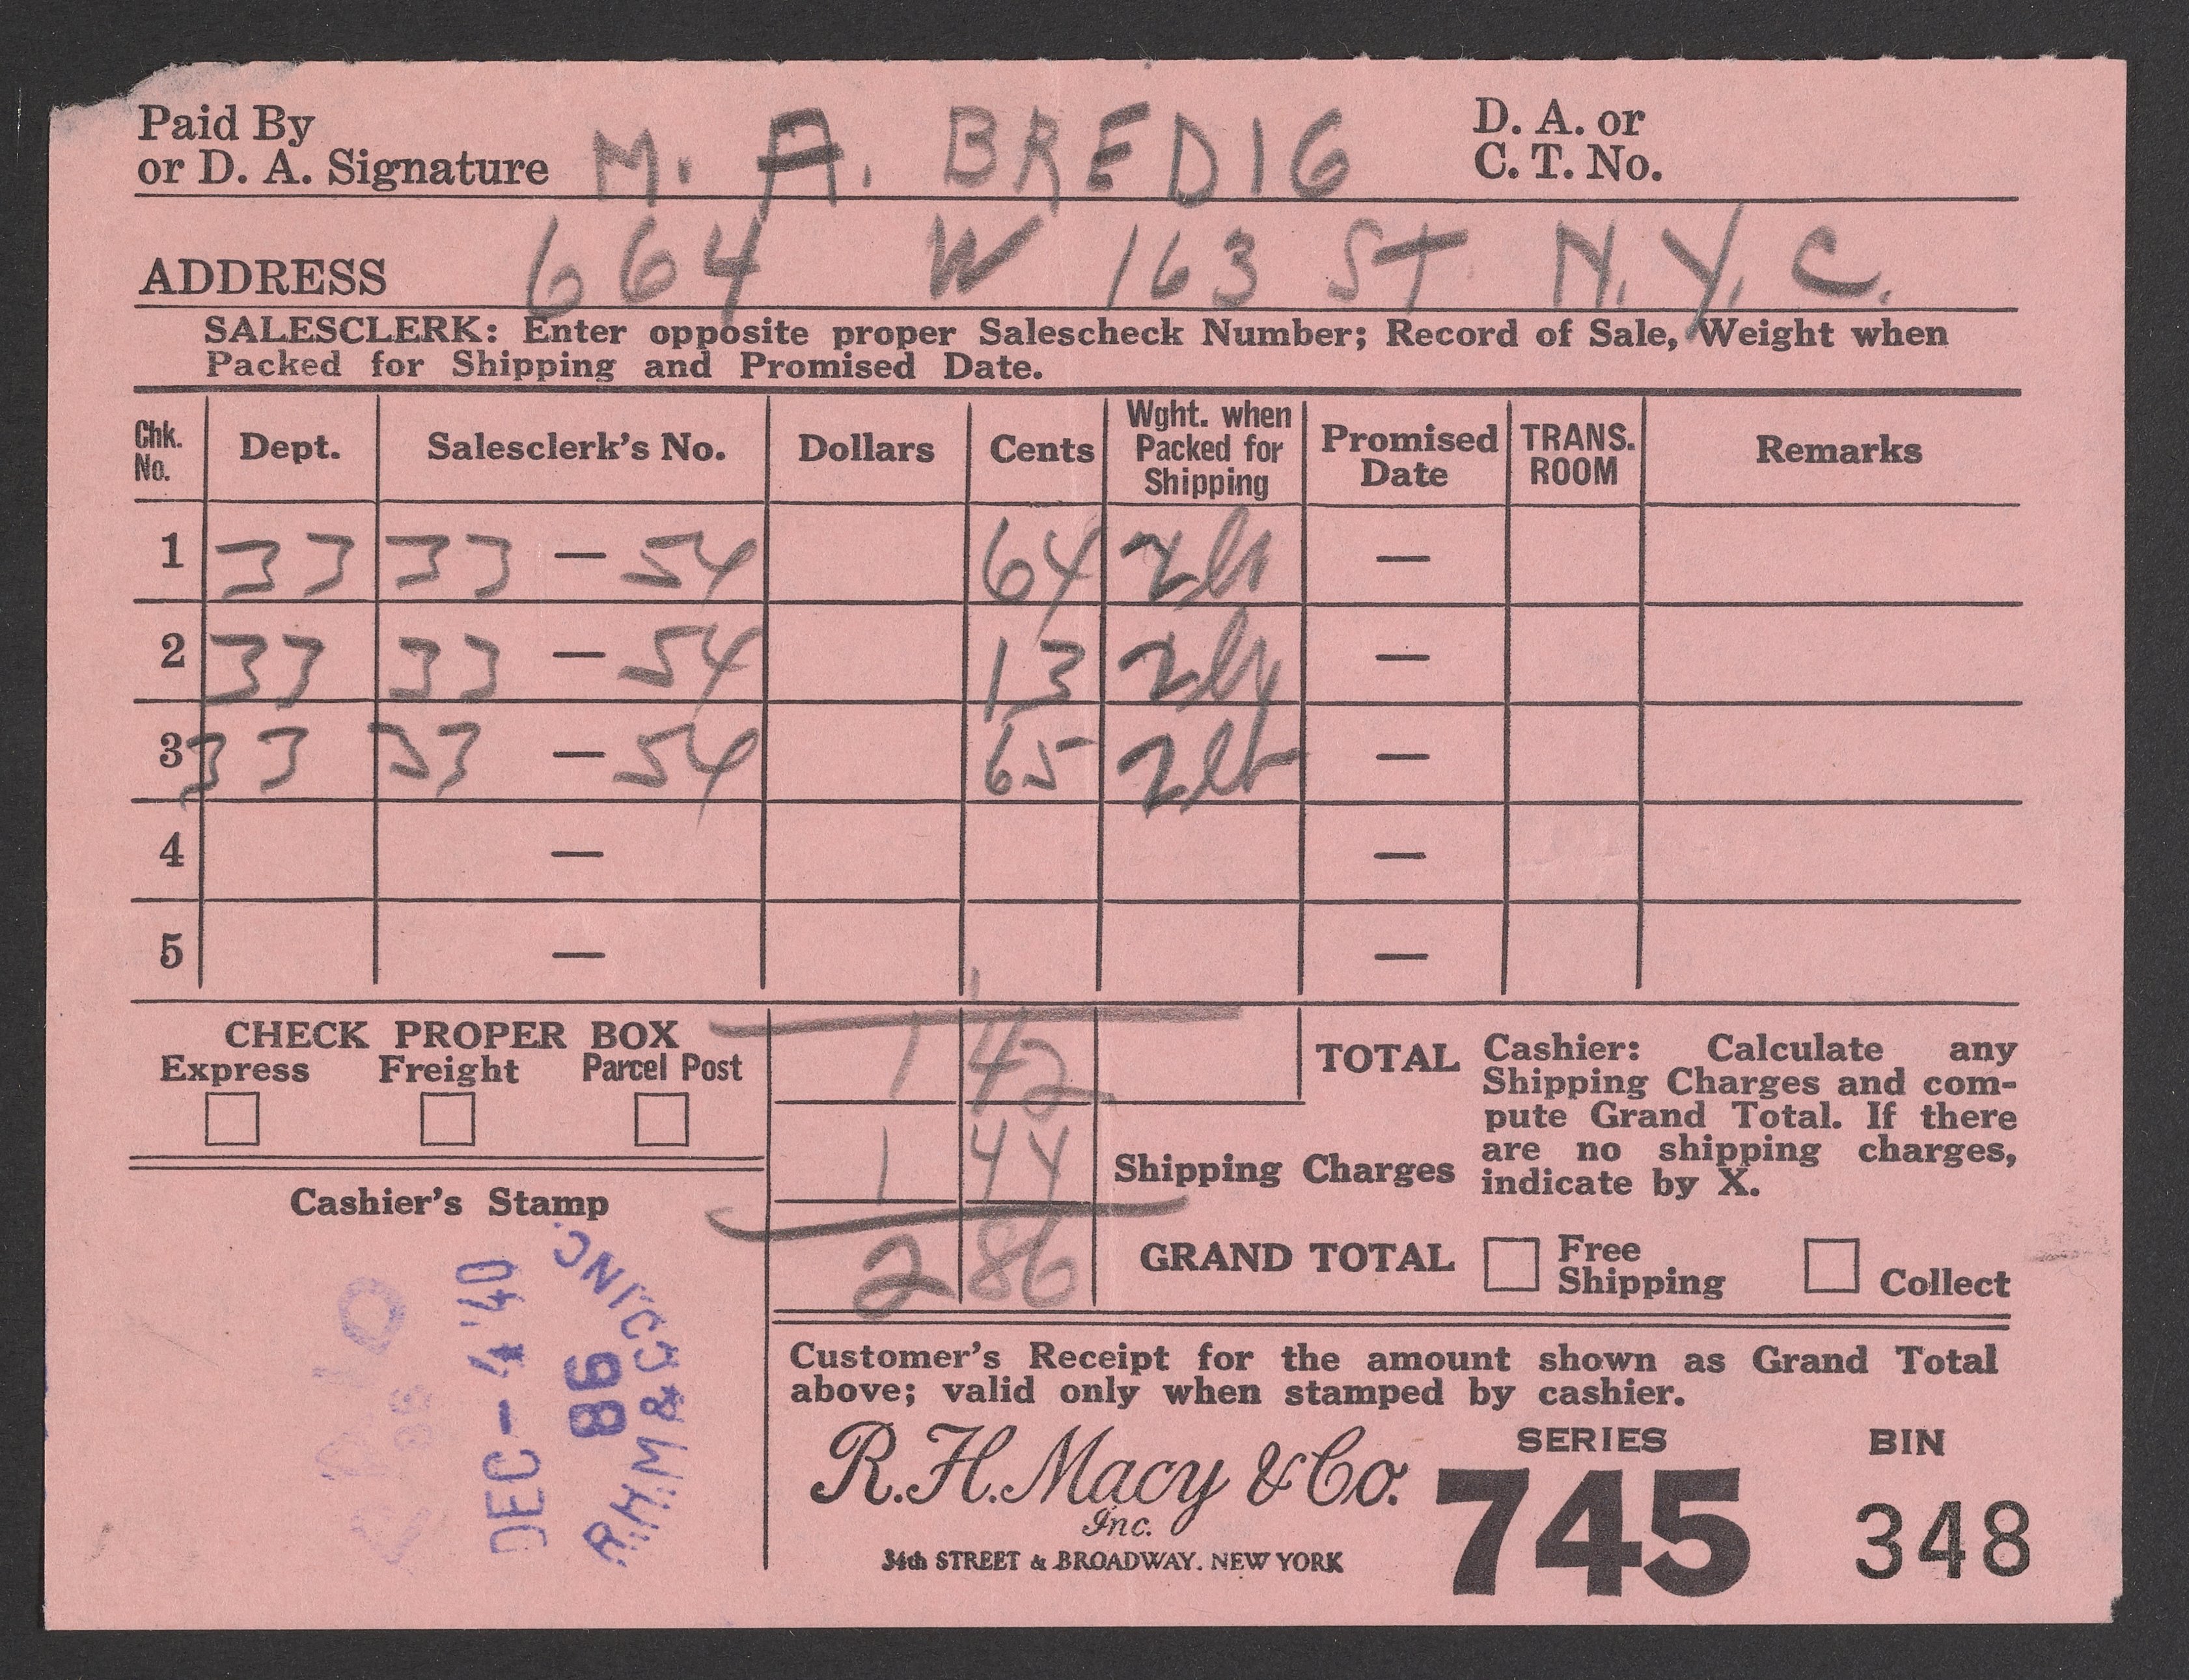 Paid By
or D. A. Signature M. A. BREDIG D. A. or
C. T. No.
ADDRESS 664 W 163 ST. N.Y.C.
SALESCLERK: Enter opposite proper Salescheck Number; Record of Sale, Weight when
Packed for Shipping and Promised Date.
Chk. No. Dept. Salesclerk's No. Dollars Cents Wght. when Packed for Shipping Promised Date TRANS. ROOM Remarks
1 33 33 — 54 64 2 lb —
2 33 33 — 54 13 2 lb —
3 33 33 — 54 65 2 lb —
4 — —
5 — —
CHECK PROPER BOX
Express Freight Parcel Post
1 42 TOTAL
Cashier: Calculate any
Shipping Charges and com-
pute Grand Total. If there
are no shipping charges,
indicate by X.
1 44 Shipping Charges
2 86 GRAND TOTAL Free Shipping Collect
Cashier's Stamp
DEC - 4 '40
86
R.H.M & CO. INC.
Customer's Receipt for the amount shown as Grand Total
above; valid only when stamped by cashier.
R.H. Macy & Co.
Inc.
34th STREET & BROADWAY. NEW YORK
SERIES
745
BIN
348